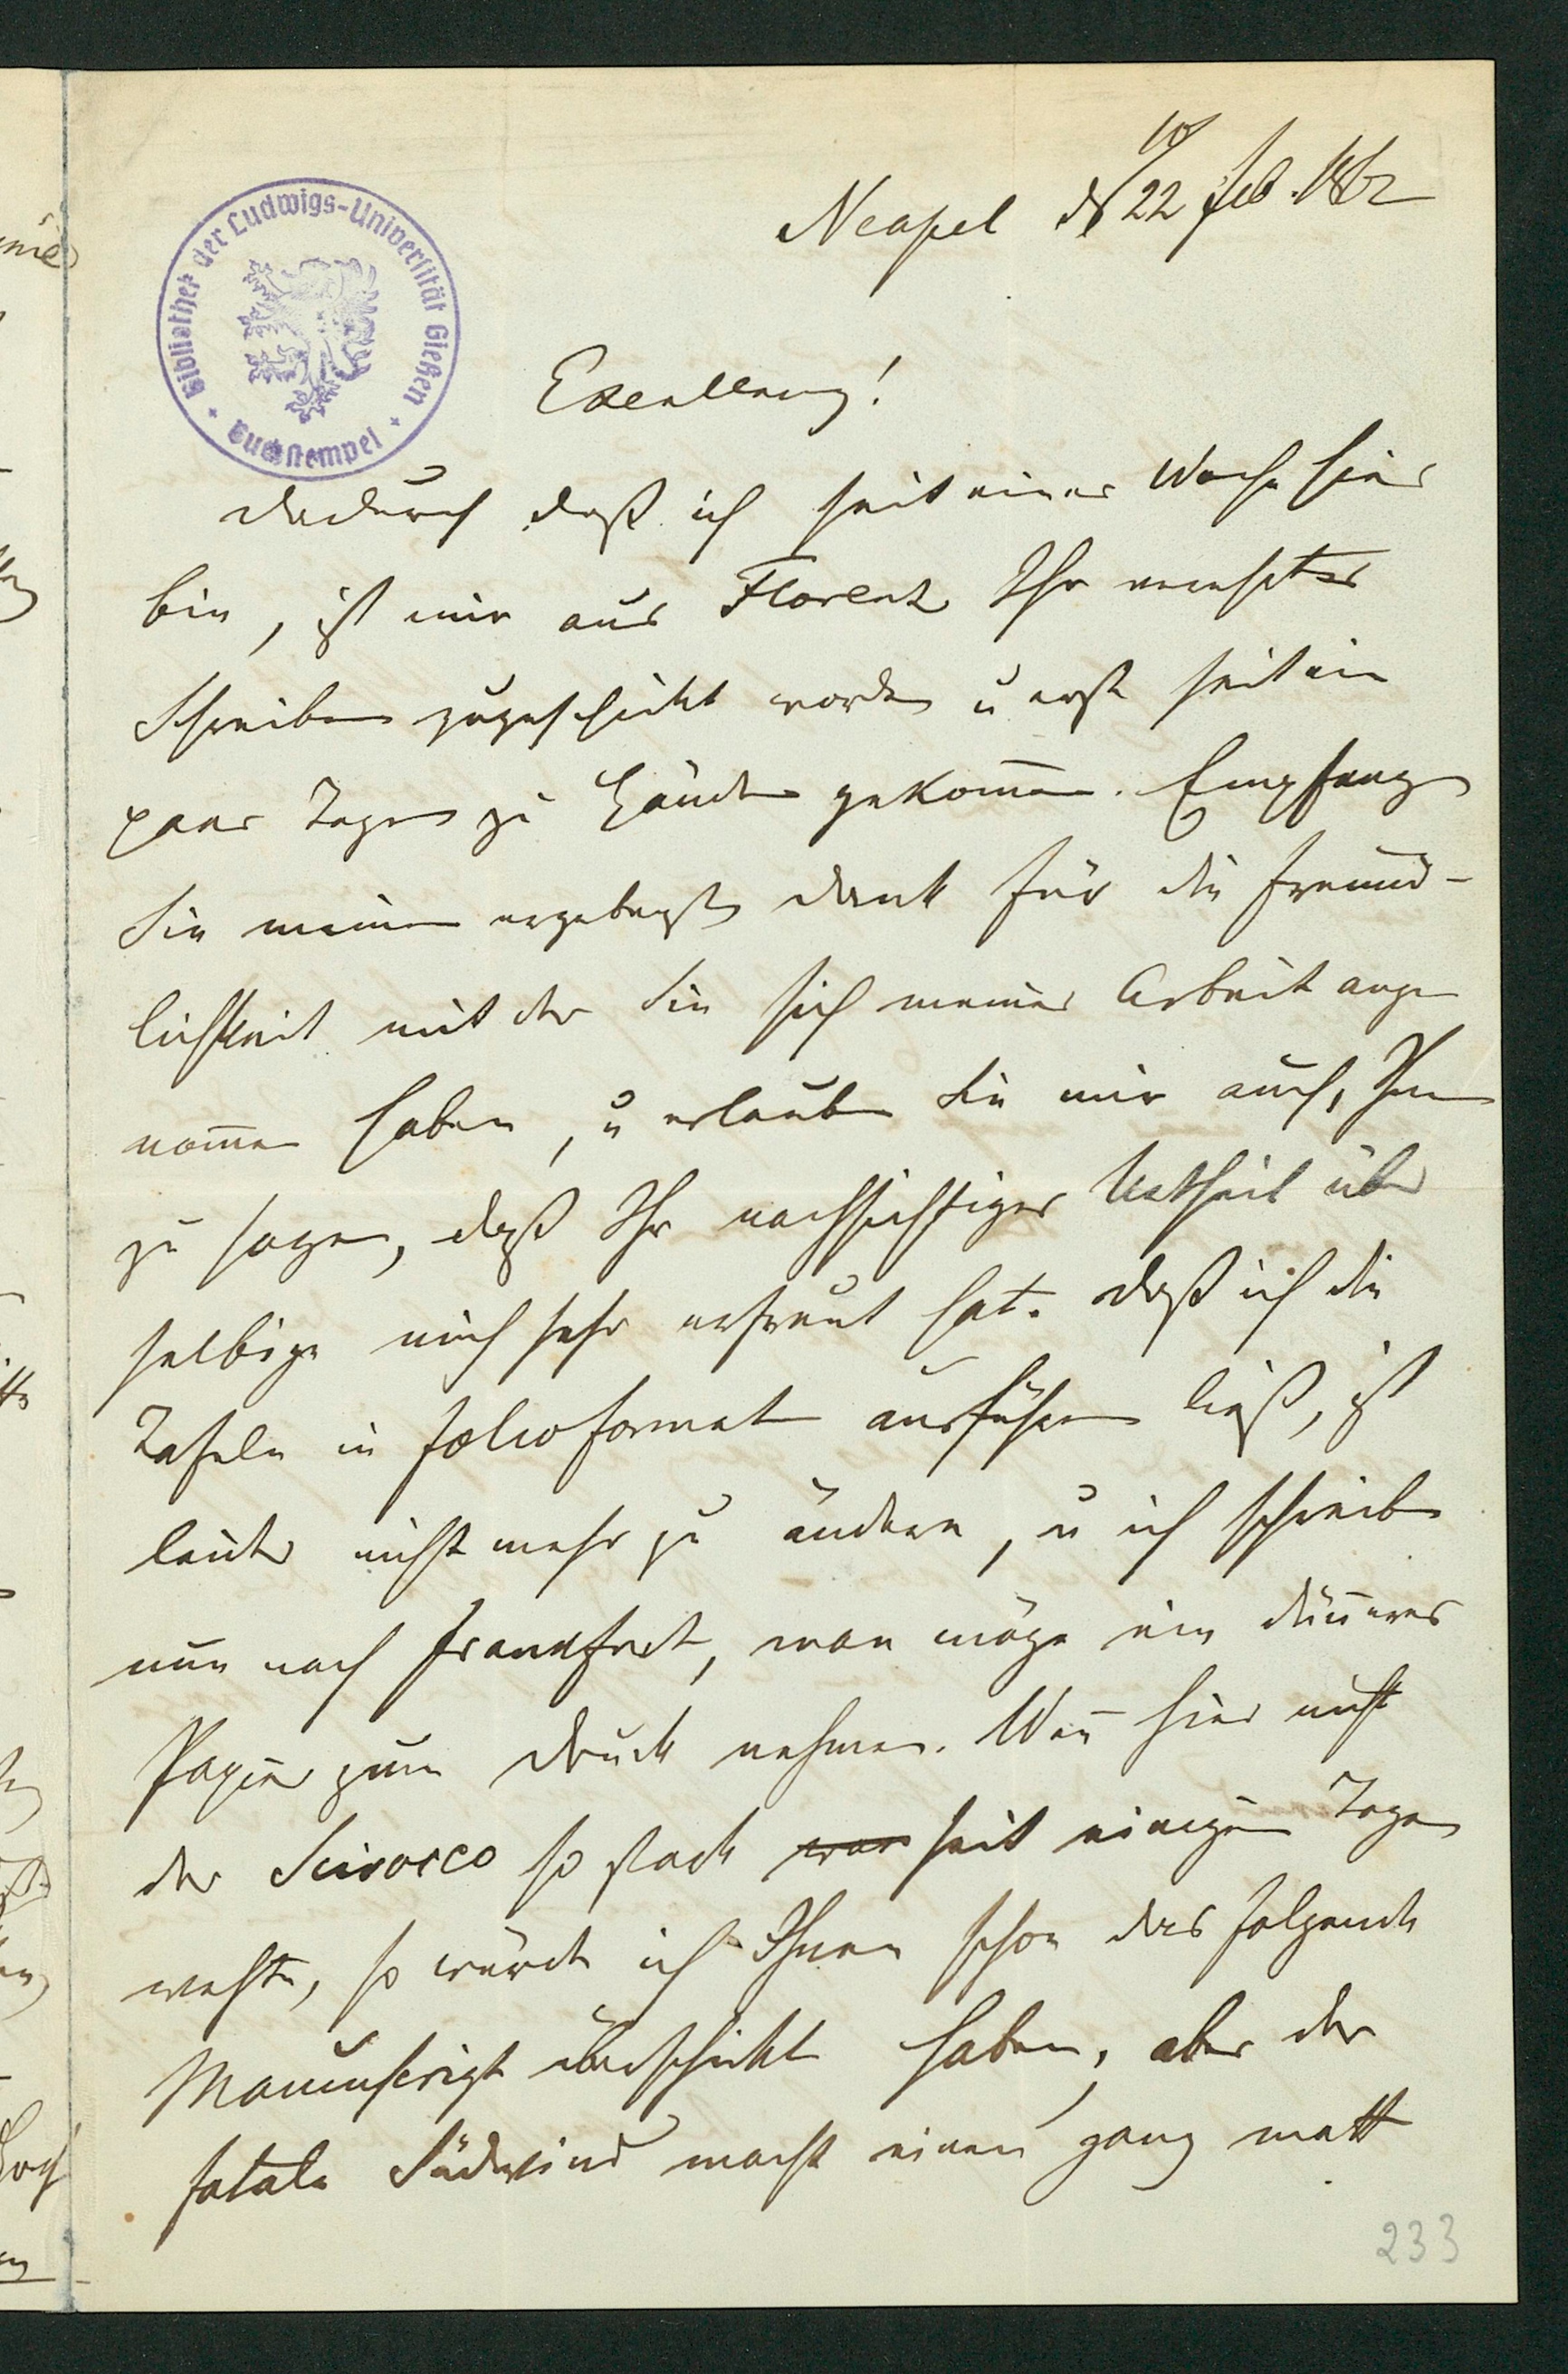 10/22 Feb. 1862
Neapel d
Bibliothek der Ludwigs-Universität Gießen
Buchstempel
Exzellenz!
Dadurch daß ich seit einer Woche hier
bin, ist mir aus Florenz Ihr werthes
Schreiben zugeschickt worden u erst seit ein
paar Tagen zu Händen gekom̄en. Empfangen
Sie meinen ergebensten Dank für die Freund-
lichkeit mit der Sie sich meiner Arbeit ange
nom̄en haben, u erlauben Sie mir auch, Ihnen
zu sagen, daß Ihr nachsichtiges Urtheil über
selbige mich sehr erfreut hat. Daß ich die
Tafeln in Folioformat ausführen ließ, ist
leider nicht mehr zu ändern, u ich schreibe
nun nach Frankfurt, man möge ein dün̄eres
Papier zum Druck nehmen. Wen̄ hier nicht
der Scirocco so stark war seit einigen Tagen
wehte, so würde ich Ihnen schon das folgende
Manuscript überschickt haben, aber der
fatale Südwind macht einen ganz matt
233